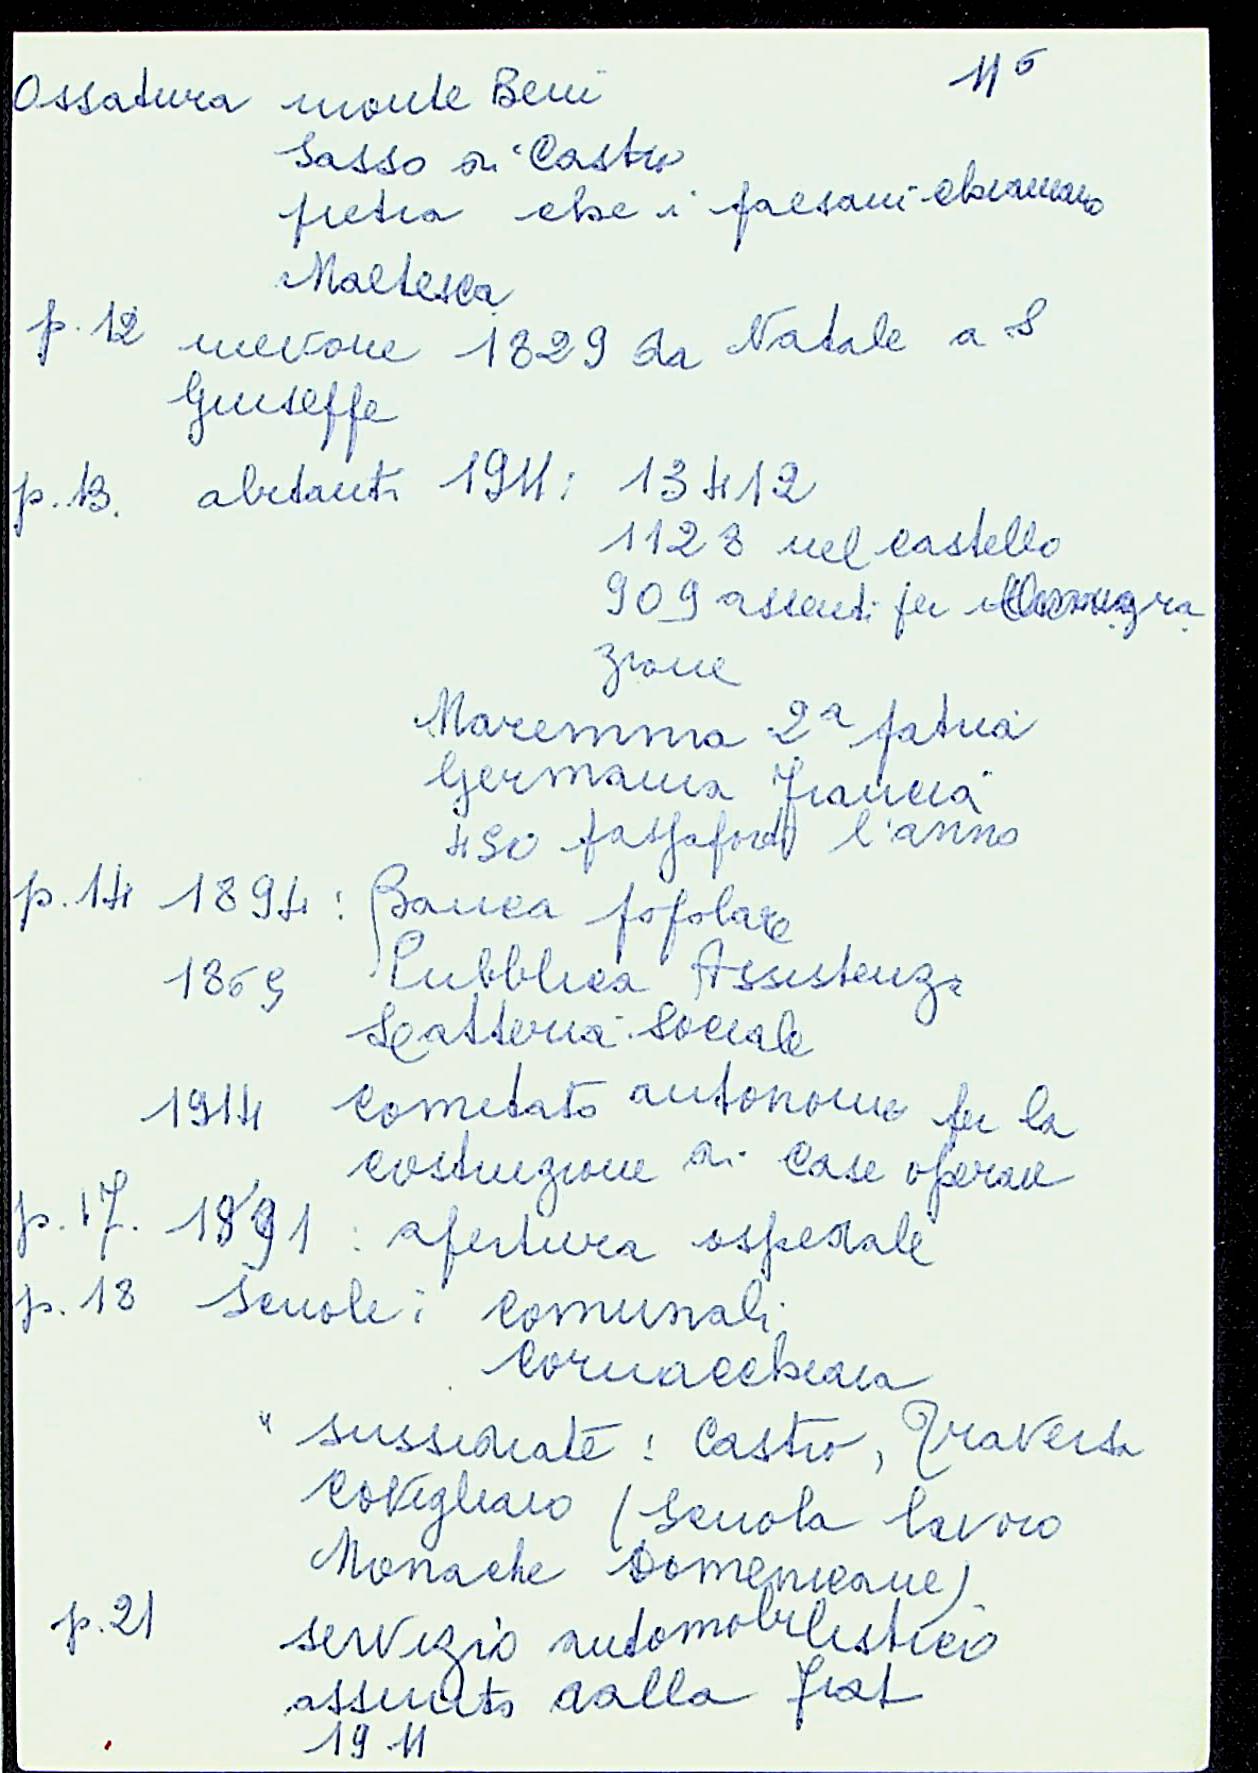 Ossatura monte Beni
Sasso di Castro
pietra che i paesani chiamano
Maltesca
p. 12 nevone 1829 da Natale a S
Giuseppe
p. 13. abitanti 1911: 13412
1128 nel castello
909 assenti per emigra
zione
Maremma 2ª patria
Germania Francia
450 passaporti l'anno
p. 14 1894: Banca popolare
1869 Pubblica Assistenza
Scatteria Sociale
1914 Comitato autonomo per la
costruzione di case operaie
p. 17. 1891: apertura ospedale
p. 18 Scuole: Comunali
Cornacchiaia
" sussidiate: Castro, Traversa
Covigliaio (Scuola lavoro
Monache Domenicane)
p. 21 servizio automobilistico
assunto dalla Fiat
1911